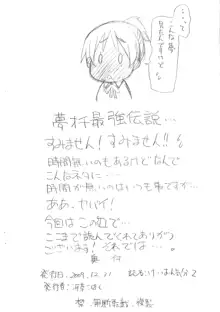 …って
こんな夢
見たんですけど
夢オチ最強伝説…
すみません！すみません!!
時間無いのもあるけどなんで
こんなネタに…
時間が無いのはいつも事ですが…
ああ、ヤバイ！
今回はこの辺で…
ここまで読んでくれてありがとう
ございます！それでは…
発行日 2009.12.31
発行者
禁 無断転載・複製